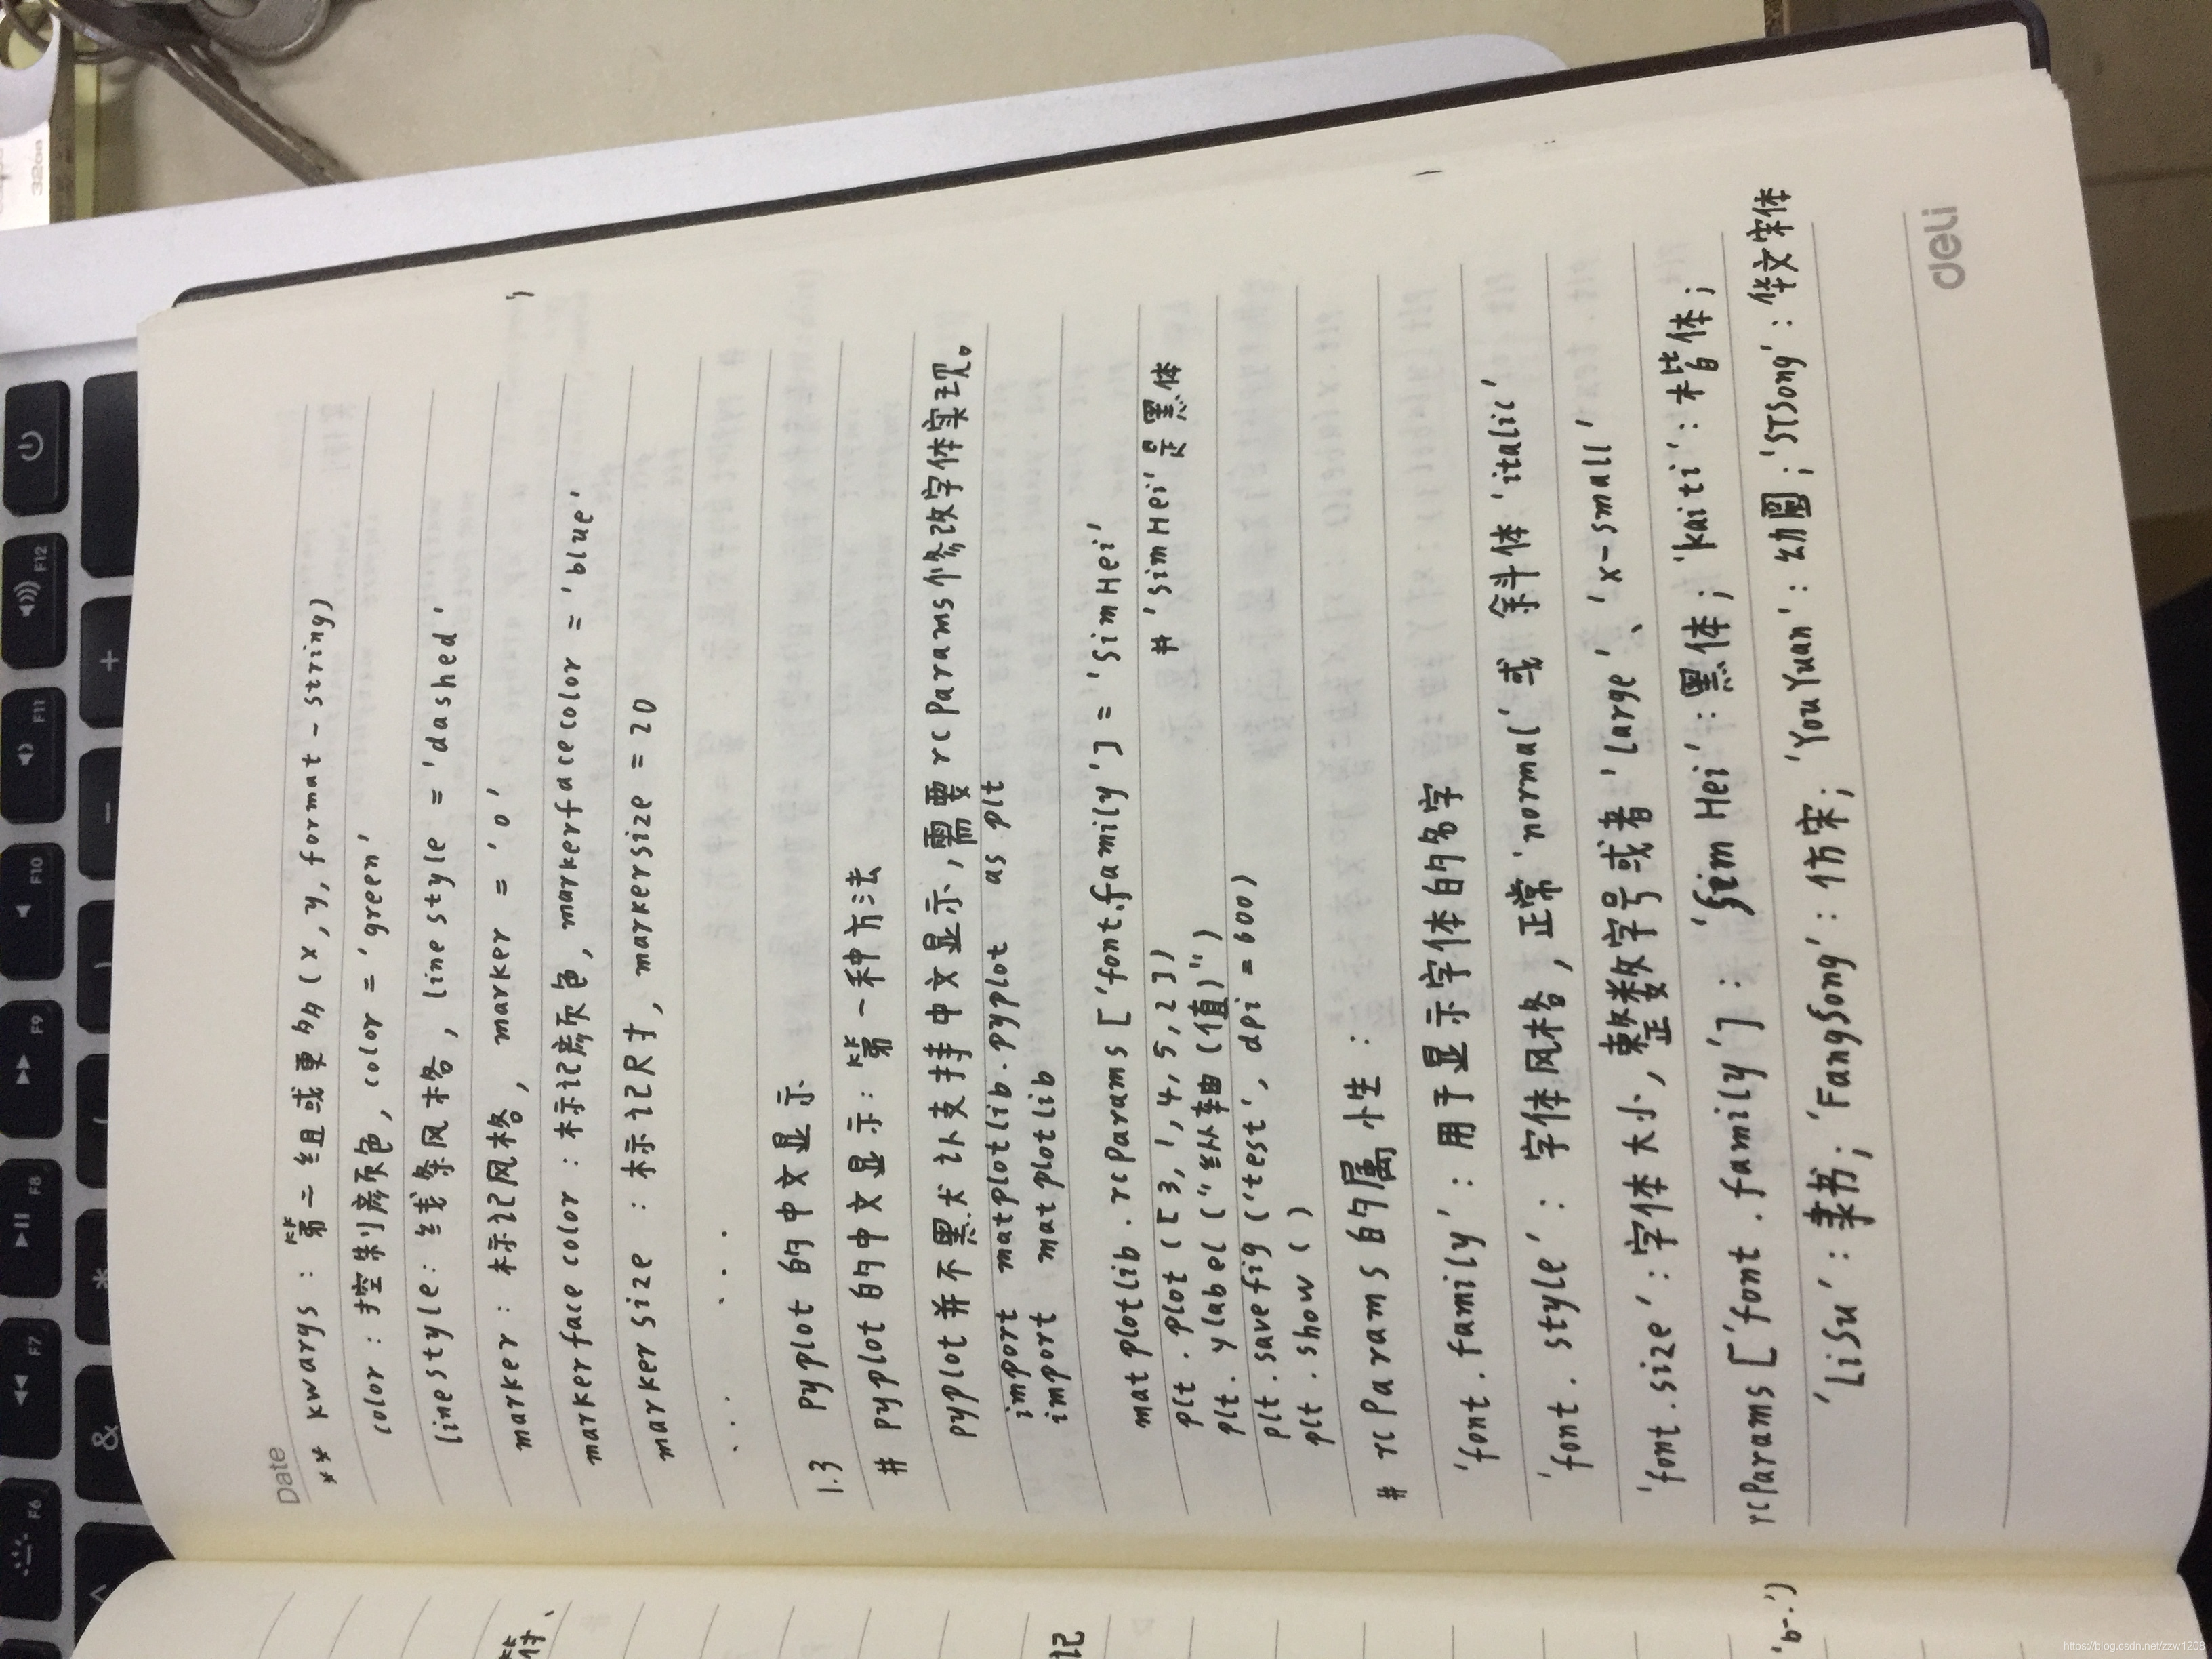 Date
** kwargs : 第二组或更多 (x, y, format-string)
color : 控制颜色, color = 'green'
linestyle : 线条风格, linestyle = 'dashed'
marker : 标记风格, marker = 'o'
markerfacecolor : 标记颜色, markerfacecolor = 'blue'
markersize : 标记尺寸, markersize = 20
. . . . .
1.3 pyplot 的中文显示
# pyplot 的中文显示 : 第一种方法
pyplot 并不默认支持中文显示, 需要 rcParams 修改字体实现。
import matplotlib.pyplot as plt
import matplotlib
matplotlib.rcParams['font.family']='SimHei'
# 'SimHei' 是黑体
plt.plot([3,1,4,5,2])
plt.ylabel("纵轴(值)")
plt.savefig('test', dpi=600)
plt.show()
# rcParams 的属性 :
'font.family' : 用于显示字体的名字
'font.style' : 字体风格, 正常'normal' 或 斜体 'italic'
'font.size' : 字体大小, 整数字号或者'large'、'x-small'
rcParams['font.family'] : 'SimHei' : 黑体; 'kaiti' : 楷体;
'LiSu' : 隶书; 'FangSong' : 仿宋; 'YouYuan' : 幼圆; 'STSong' : 华文宋体
deli
符、
记
'b-.')
F6
F7
F8
F9
F10
F11
F12
https://blog.csdn.net/zzw1208